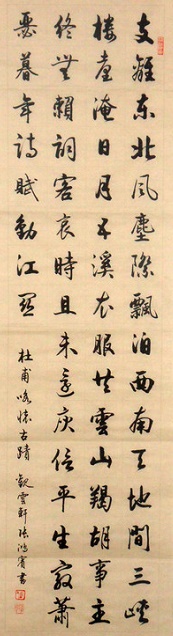 支離东北風塵際飄泊西南天地間三峽
樓臺淹日月五溪衣服共雲山羯胡事主
終無賴詞客哀時且未還庾信平生寂蕭
瑟暮年詩賦動江關
杜甫咏懷古蹟 觀雲軒張鴻賓書